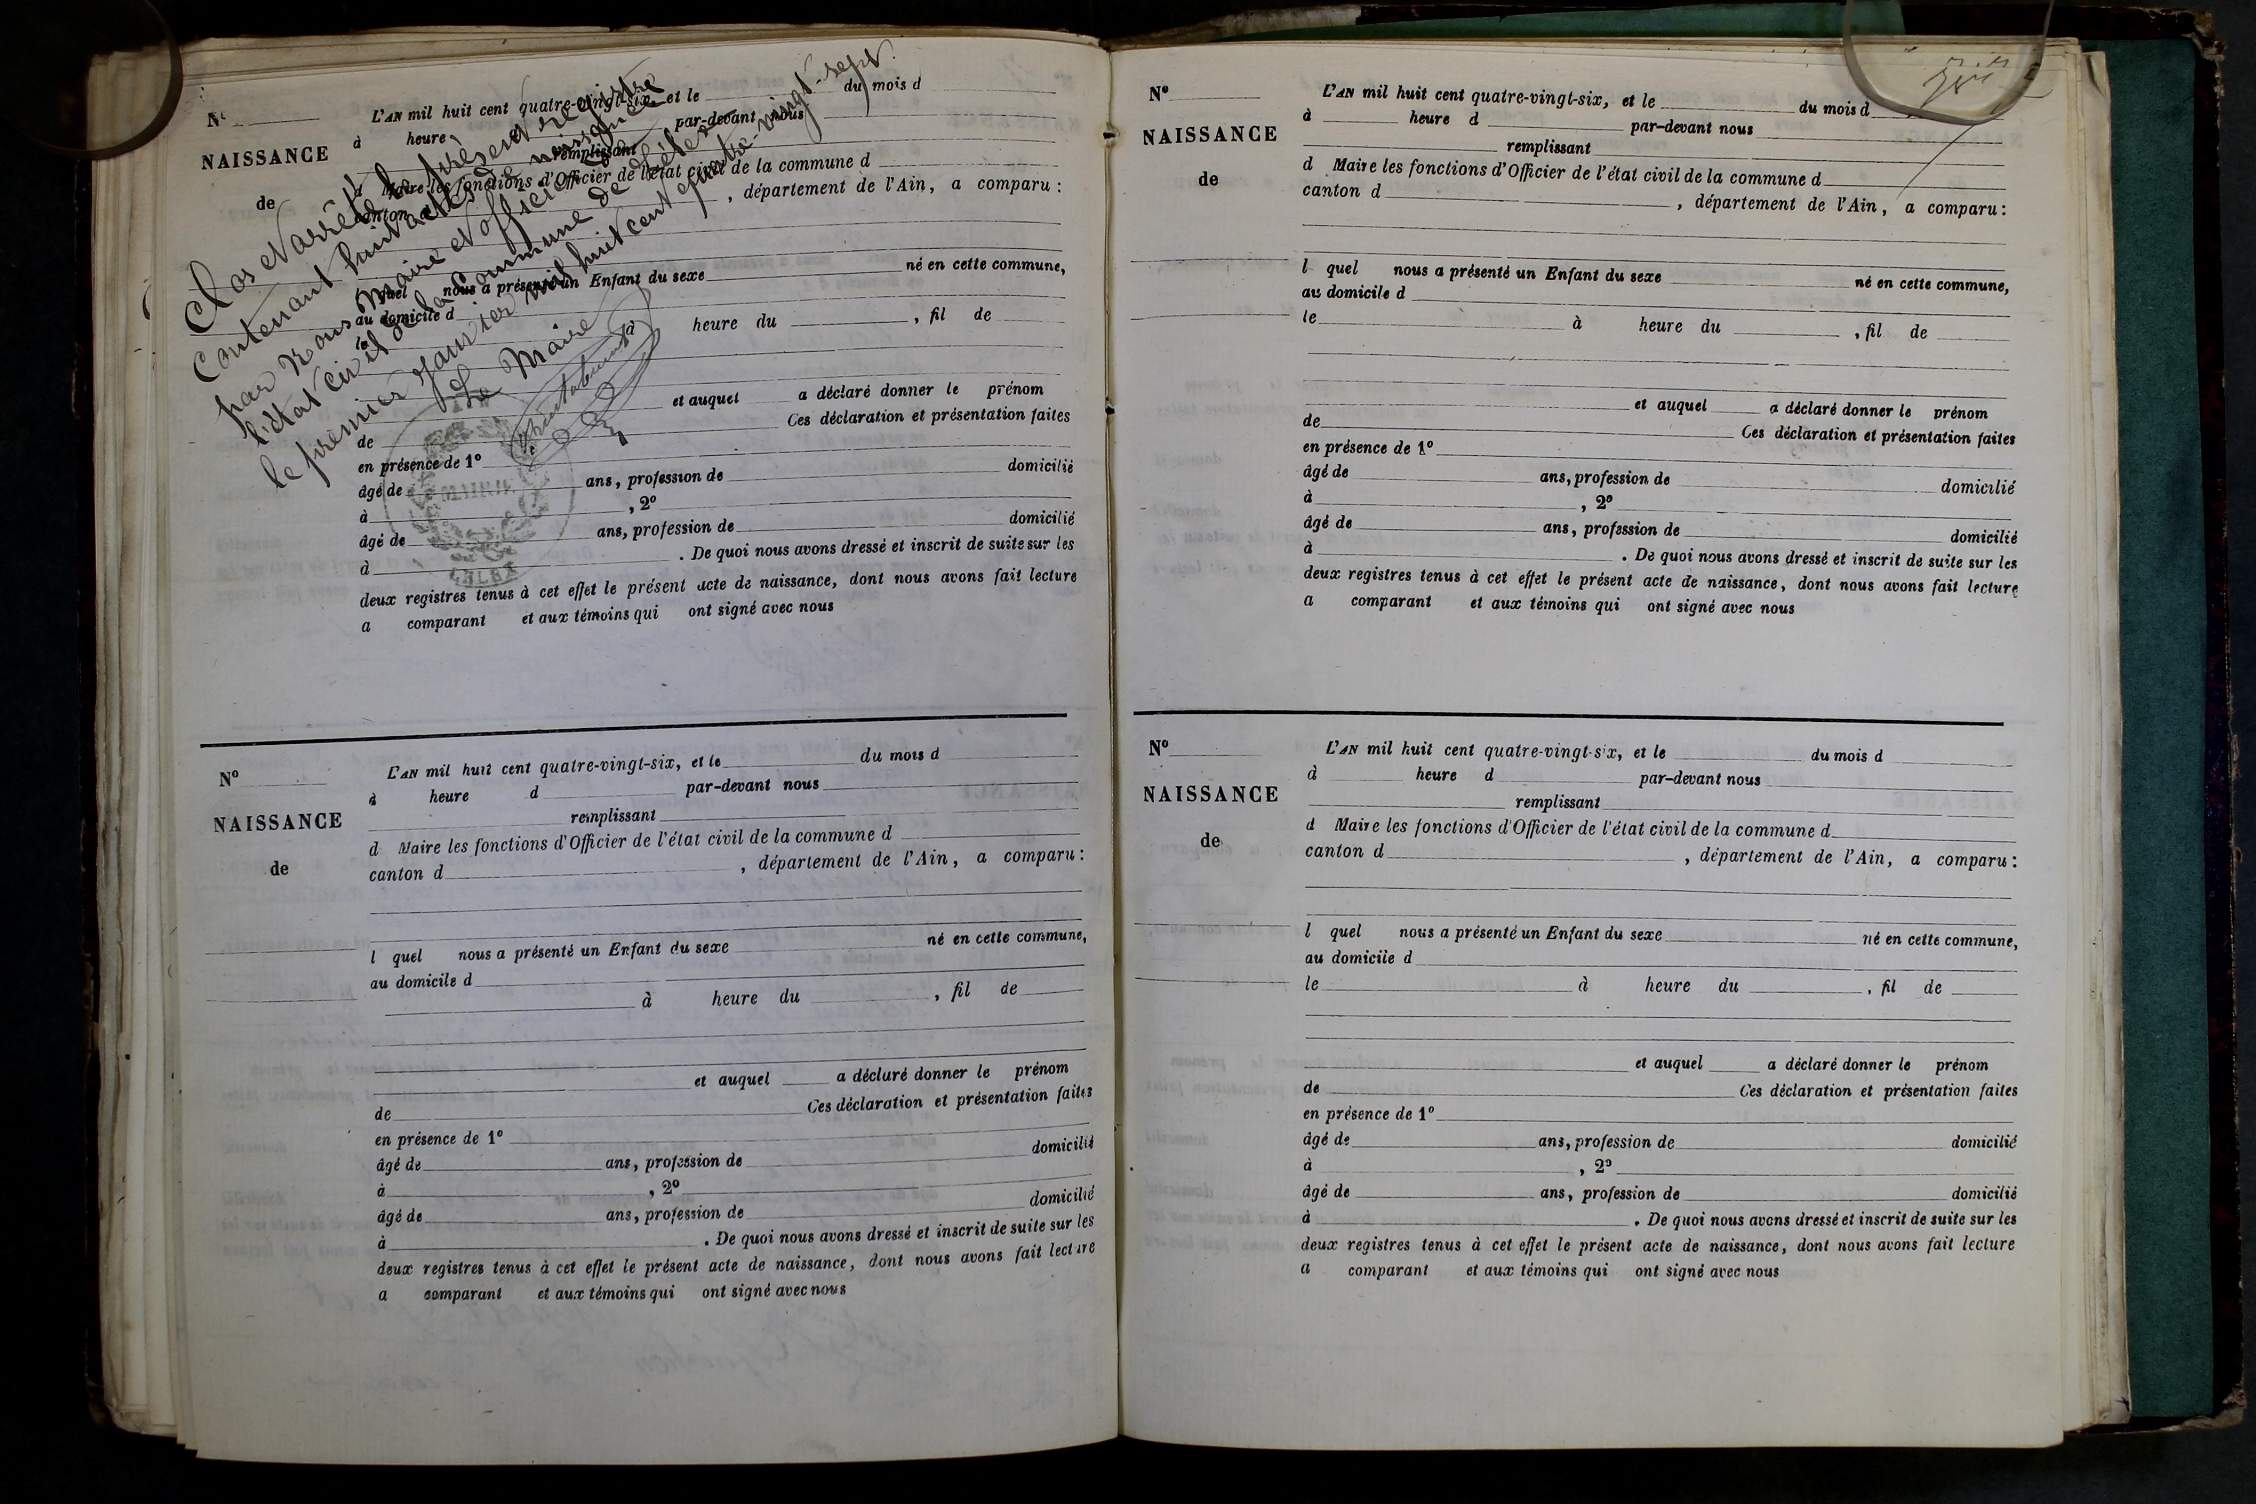 Clos et arrêté le présent registre
Contenant huit actes de naissance
par Nous Maire et officier de
l'état civil de la Commune de
le premier Janvier mil huit cent quatre-vingt-sept.
Le Maire
MAIRIE
N°
NAISSANCE
de
L'AN mil huit cent quatre-vingt-six, et le du mois d
à heure par-devant nous
remplissant
d Maire les fonctions d'Officier de l'état civil de la commune d
canton d , département de l'Ain, a comparu :
l quel nous a présenté un Enfant du sexe né en cette commune,
au domicile d
le à heure du , fil de
et auquel a déclaré donner le prénom
de Ces déclaration et présentation faites
en présence de 1°
âgé de ans, profession de domicilié
à , 2°
âgé de ans, profession de domicilié
à . De quoi nous avons dressé et inscrit de suite sur les
deux registres tenus à cet effet le présent acte de naissance, dont nous avons fait lecture
a comparant et aux témoins qui ont signé avec nous
N°
NAISSANCE
de
L'AN mil huit cent quatre-vingt-six, et le du mois d
à heure d par-devant nous
remplissant
d Maire les fonctions d'Officier de l'état civil de la commune d
canton d , département de l'Ain, a comparu :
l quel nous a présenté un Enfant du sexe né en cette commune,
au domicile d
à heure du , fil de
et auquel a déclaré donner le prénom
de Ces déclaration et présentation faites
en présence de 1°
âgé de ans, profession de domicilié
à , 2°
âgé de ans, profession de domicilié
à . De quoi nous avons dressé et inscrit de suite sur les
deux registres tenus à cet effet le présent acte de naissance, dont nous avons fait lecture
a comparant et aux témoins qui ont signé avec nous
N°
NAISSANCE
de
L'AN mil huit cent quatre-vingt-six, et le du mois d
à heure d par-devant nous
remplissant
d Maire les fonctions d'Officier de l'état civil de la commune d
canton d , département de l'Ain, a comparu :
l quel nous a présenté un Enfant du sexe né en cette commune,
au domicile d
le à heure du , fil de
et auquel a déclaré donner le prénom
de Ces déclaration et présentation faites
en présence de 1°
âgé de ans, profession de domicilié
à , 2°
âgé de ans, profession de domicilié
à . De quoi nous avons dressé et inscrit de suite sur les
deux registres tenus à cet effet le présent acte de naissance, dont nous avons fait lecture
a comparant et aux témoins qui ont signé avec nous
N°
NAISSANCE
de
L'AN mil huit cent quatre-vingt-six, et le du mois d
à heure d par-devant nous
remplissant
d Maire les fonctions d'Officier de l'état civil de la commune d
canton d , département de l'Ain, a comparu :
l quel nous a présenté un Enfant du sexe né en cette commune,
au domicile d
le à heure du , fil de
et auquel a déclaré donner le prénom
de Ces déclaration et présentation faites
en présence de 1°
âgé de ans, profession de domicilié
à , 2°
âgé de ans, profession de domicilié
à . De quoi nous avons dressé et inscrit de suite sur les
deux registres tenus à cet effet le présent acte de naissance, dont nous avons fait lecture
a comparant et aux témoins qui ont signé avec nous